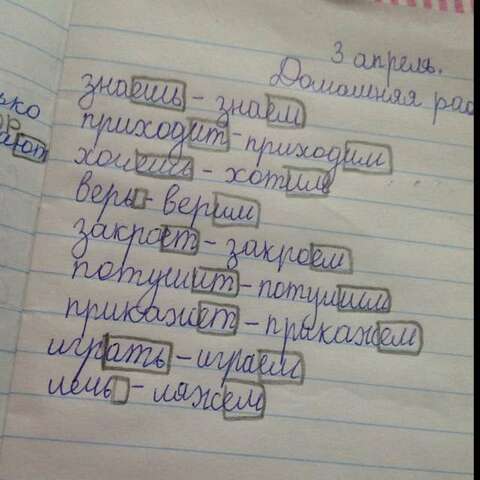 3 апрель.
Домашняя рас
знаешь - знаем
приходит - приходим
хочешь - хотим
верь - верим
закроет - закроем
потушит - потушим
прикажет - прыкажем
играть - играем
лечь - ляжем